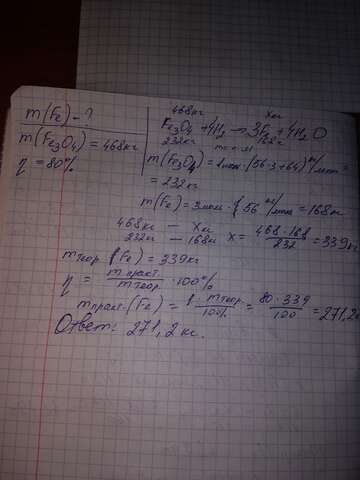 m(Fe) - ?
m(Fe3O4) = 468кг
η = 80%
468кг xкг
Fe3O4 + 4H2 → 3Fe + 4H2O
232кг 168кг
m = n·M
m(Fe3O4) = 1моль · (56·3+64) кг/моль =
= 232кг
m(Fe) = 3моль · 56 кг/моль = 168кг
468кг — xкг
232кг — 168кг x = 468·168/232 = 339кг
mтеор. (Fe) = 339кг
η = mпракт./mтеор. · 100%
mпракт. (Fe) = η · mтеор./100% = 80·339/100 = 271,2кг
Ответ: 271,2 кг.